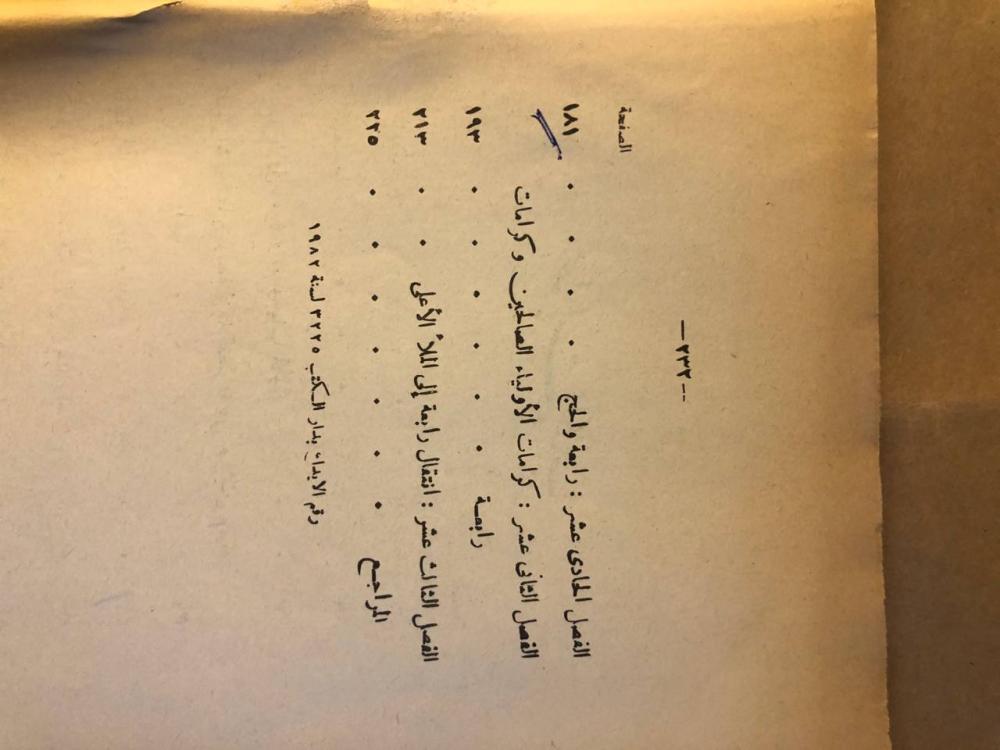 — ٢٣٢ —
الصفحة
الفصل الحادى عشر : رابعة والحج . . . . ١٨١
الفصل الثانى عشر : كرامات الأولياء الصالحين وكرامات
رابعـة . . . . . . ١٩٣
الفصل الثالث عشر : انتقال رابعة إلى الملأ الأعلى . . ٢١٣
المراجـع . . . . . . . ٢٢٥
رقم الايداع بدار الـكتب ٣٢٢٥ لسنة ١٩٨٢